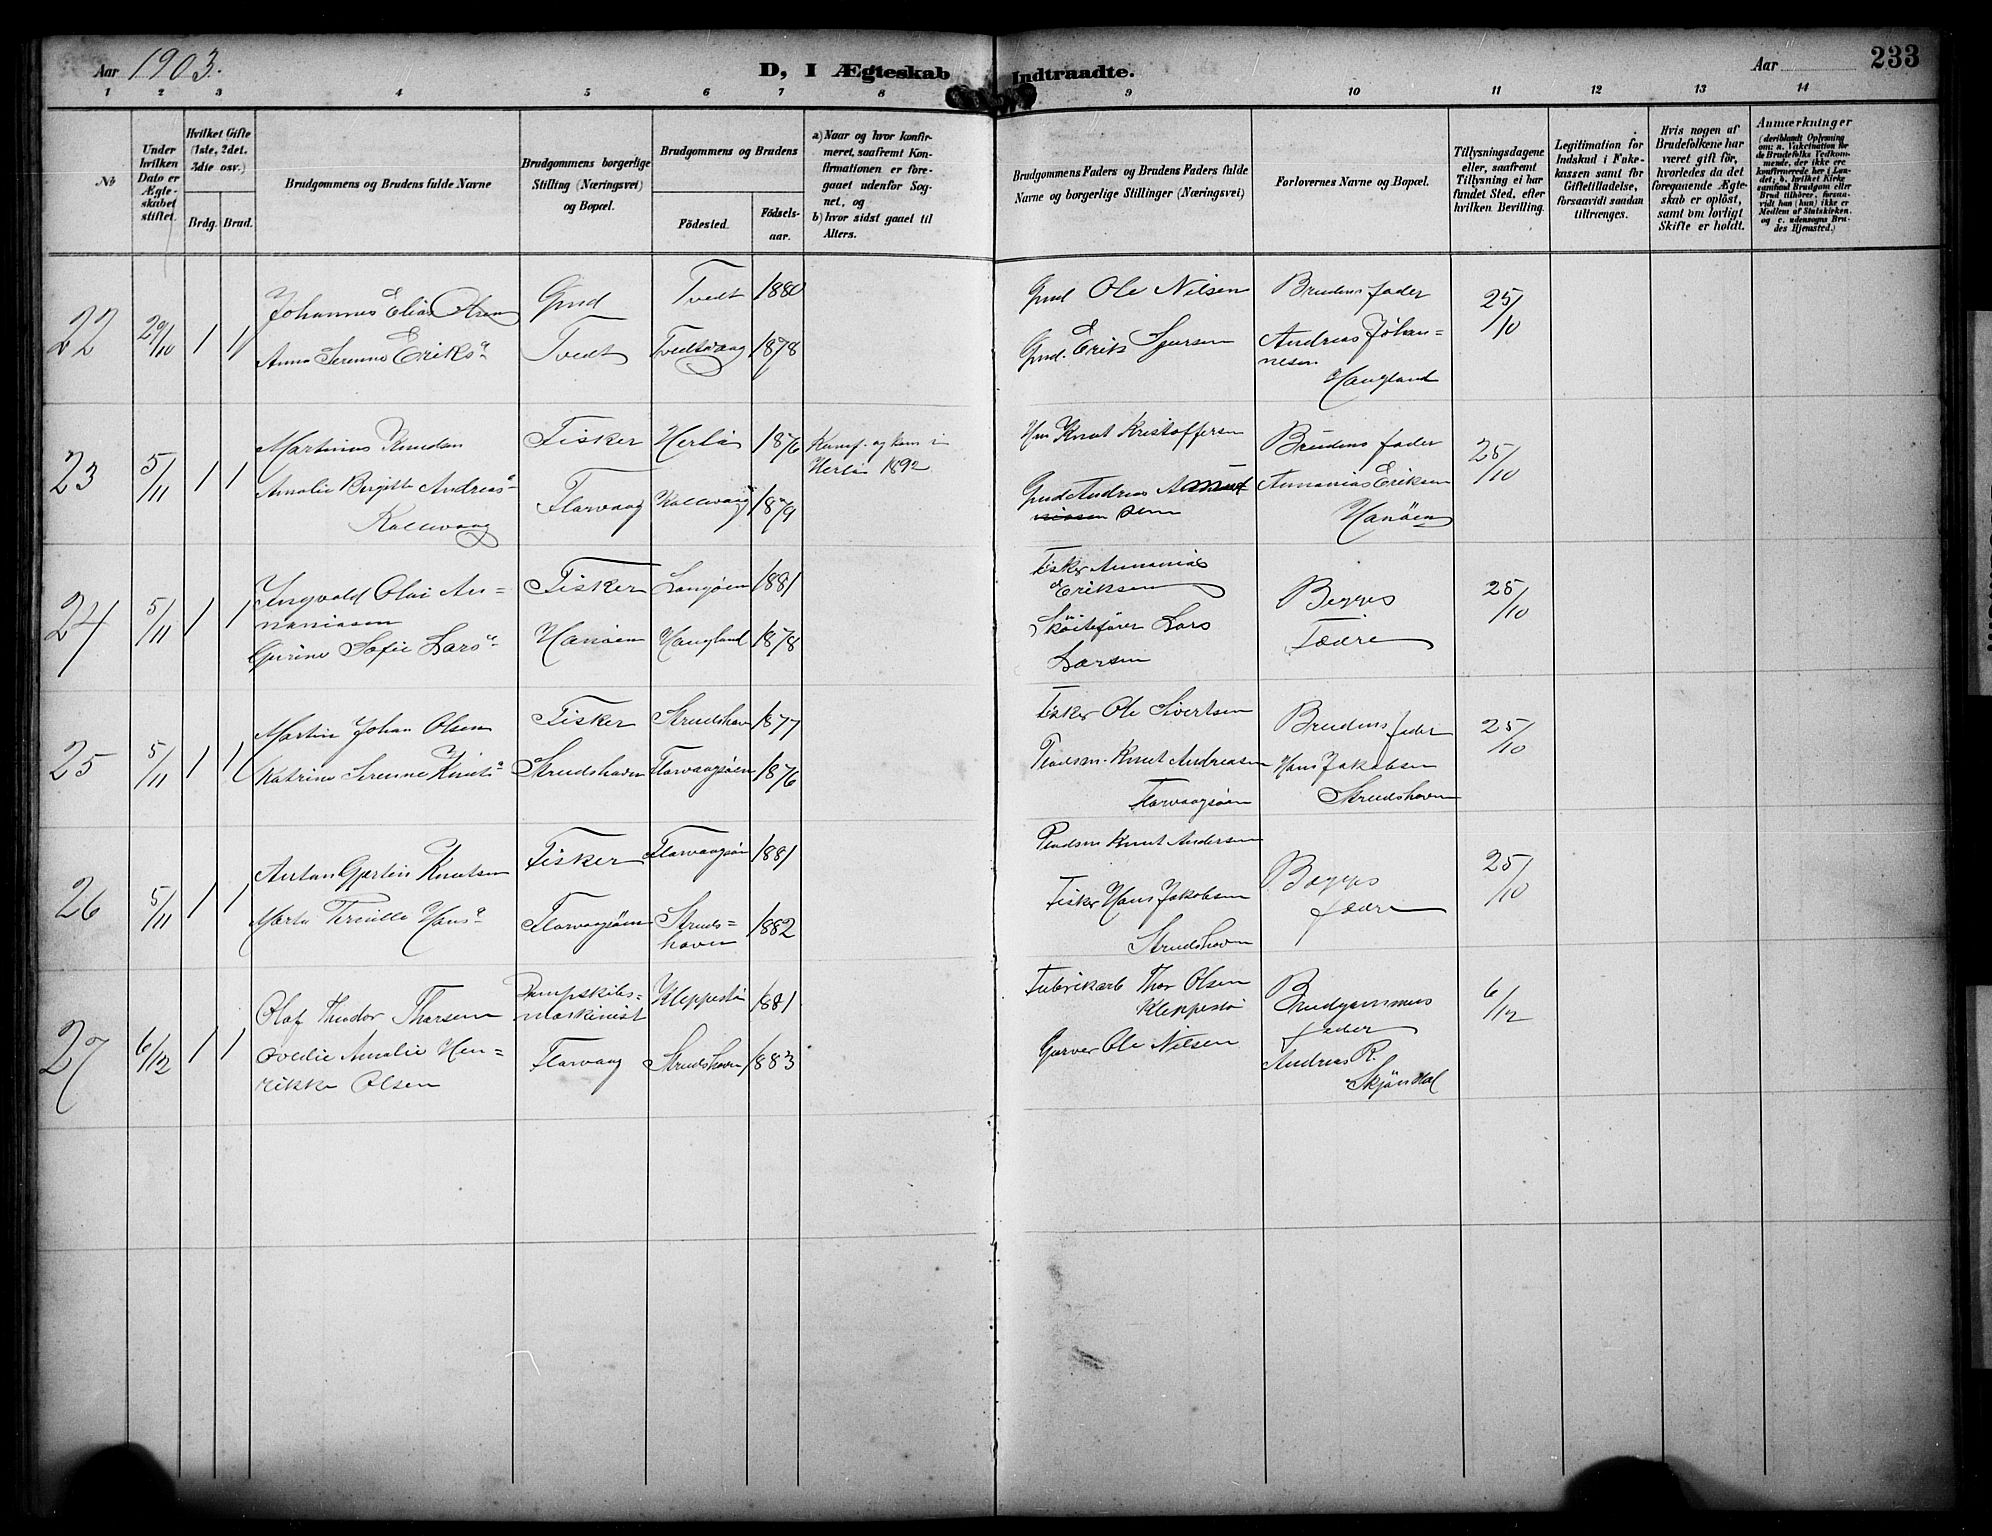 Aar 1903.
D, I Ægteskab Indtraadte.
Aar
233
1 2 3 4 5 6 7 8 9 10 11 12 13 14
No
Under hvilken Dato er Ægteskabet stiftet.
Hvilket Gifte (1ste, 2det. 3die osv.)
Brdg. Brud.
Brudgommens og Brudens fulde Navne
Brudgommens borgerlige Stilling (Næringsvei) og Bopæl.
Brudgommens og Brudens
Födested.
Födselsaar.
a) Naar og hvor konfirmeret, saafremt Konfirmationen er foregaaet udenfor Sognet, og
b) hvor sidst gaaet til Alters.
Brudgommens Faders og Brudens Faders fulde Navne og borgerlige Stillinger (Næringsvei)
Forlovernes Navne og Bopæl.
Tillysningsdagene eller, saafremt Tillysning ei har fundet Sted, efter hvilken Bevilling.
Legitimation for Indskud i Enkekassen samt for Giftetilladelse, forsaavidt saadan tiltrænges.
Hvis nogen af Brudefolkene har været gift før, hvorledes da det foregaaende Ægteskab er oplöst, samt om lovligt Skifte er holdt.
Anmærkninger
(deriblandt Oplysning om: a. Vakcination for de Brudefolks Vedkommende, der ikke ere konfirmerede her i Landet; b. hvilket Kirkesamfund Brudgom eller Brud tilhörer, forsaavidt han (hun) ikke er Medlem af Statskirken, og c. udensogns Brudes Hjemsted.)
22 29/10 1 1
Johannes Elias Olsen
Anna Serenne Eriksd
Gmd
Tvedt
Tvedt 1880
Tvedtvaag 1878
Gmd Ole Nilsen
Gmd. Erik Sjursen
Brudens fader
Andreas Johan=
nesen
Haugland
25/10
23 5/11 1 1
Martinus Knudsen
Amalie Birgitte Andreasd
Kollevaag
Fisker
Florvaag
Herlö 1876
Kollevaag 1879
Konf. og kom i
Herlö 1892
Hm Knut Kristoffersen
Gmd Andreas
Olsen
Brudens fader
Annanias Eriksen
Hanöen
25/10
24 5/11 1 1
Ingvald Olai An=
naniasen
Gurine Sofie Larsd
Fisker
Hanöen
Langöen 1881
Haugland 1878
Fisker Annanias
Eriksen
Sköitefører Lars
Larsen
Begges
Fædre
25/10
25 5/11 1 1
Martin Johan Olsen
Katrine Serenne Knutsd
Fisker
Strudshavn
Strudshavn 1877
Florvaagsöen 1876
Fisker Ole Sivertsen
Pladsm. Knut Andreasen
Florvaagsöen
Brudens fader
Hans Jakobsen
Strudshavn
25/10
26 5/11 1 1
Anton Gjertin Knutsen
Marta Hansd
Fisker
Florvaagsöen
Florvaagsöen 1881
Struds=
havn 1882
Pladsm Knut Andersen
Fisker Hans Jakobsen
Strudshavn
Begges
fædre
25/10
27 6/12 1 1
Olaf Theodor Thorsen
Ovedie Amalie Hen=
rikke Olsen
Dampskibs=
maskinist
Florvaag
Kleppestö 1881
Strudshavn 1883
Fabrikarb Thor Olsen
Kleppestö
Garver Ole Nilsen
Brudgommens
fader
Andreas R.
Skjöndal
6/12